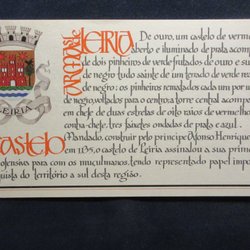 ARMAS DE LEIRIA
De ouro, um castelo de vermelho
aberto e iluminado de prata acom
de dois pinheiros de verde frutados de ouro e su
de negro tudo saínte de um terrado de verde re
de negro: os pinheiros rematados cada um por u
de negro, voltados para o centro a torre central acomp
em chefe de duas estrelas de oito raios de vermelho
contra-chefe, três faixetas ondadas de prata e azul.
LEIRIA
Castelo
Mandado, construir pelo príncipe Afonso Henriques
em 1135, o castelo de Leiria assinalou a sua prim
ofensiva para com os muçulmanos, tendo representado papel impo
quista do território a sul desta região.